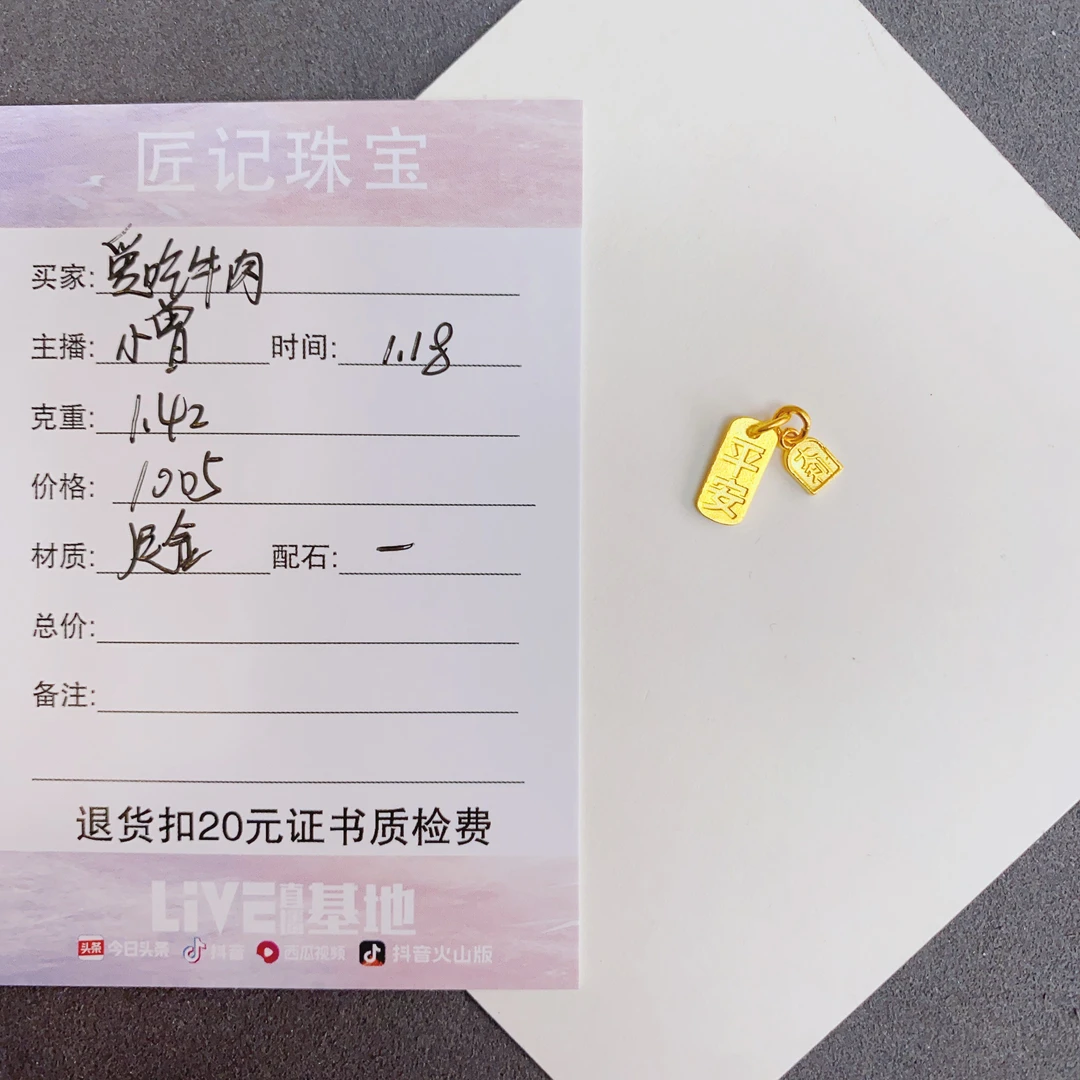 匠记珠宝
买家: 爱吃牛肉
主播: 小曾 时间: 1.18
克重: 1.42
价格: 1005
材质: 足金 配石: 一
总价:
备注:
退货扣20元证书质检费
LiVE直播基地
头条 今日头条 抖音 西瓜视频 抖音火山版
平安